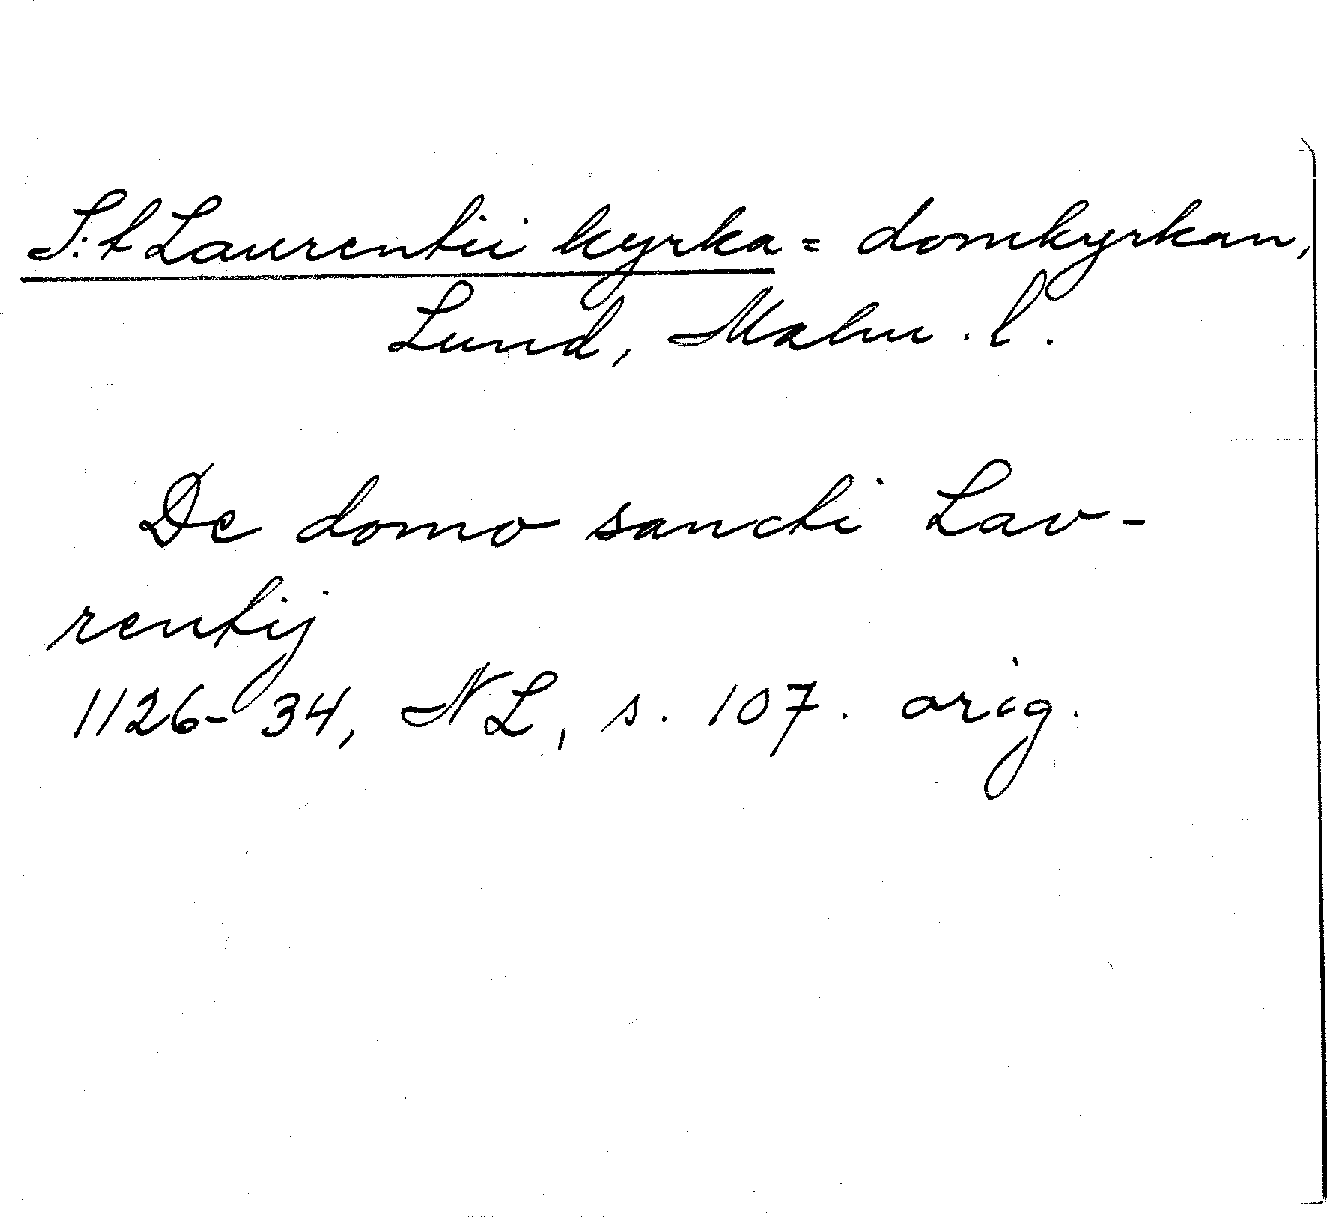 S:t Laurentii kyrka = domkyrkan,
Lund, Malm. l.
De domo sancti Lav-
rentij
1126-34, NL, s. 107. orig.